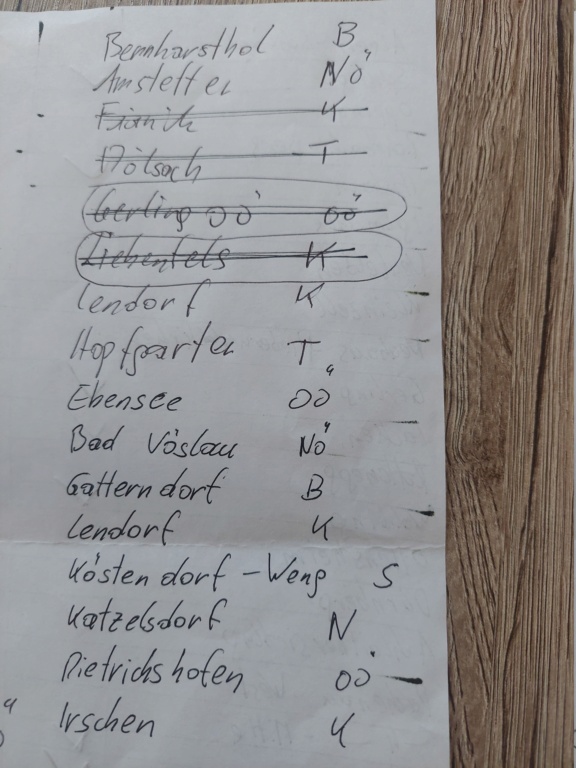 Bernharsthol B
Amstetten NÖ
K
Dölsach T
Gerling OÖ OÖ
Liebenfels K
Lendorf K
Hopfgarten T
Ebensee OÖ
Bad Vöslau NÖ
Gatterndorf B
Lendorf K
Köstendorf - Weng S
Katzelsdorf N
Dietrichshofen OÖ
Irschen K